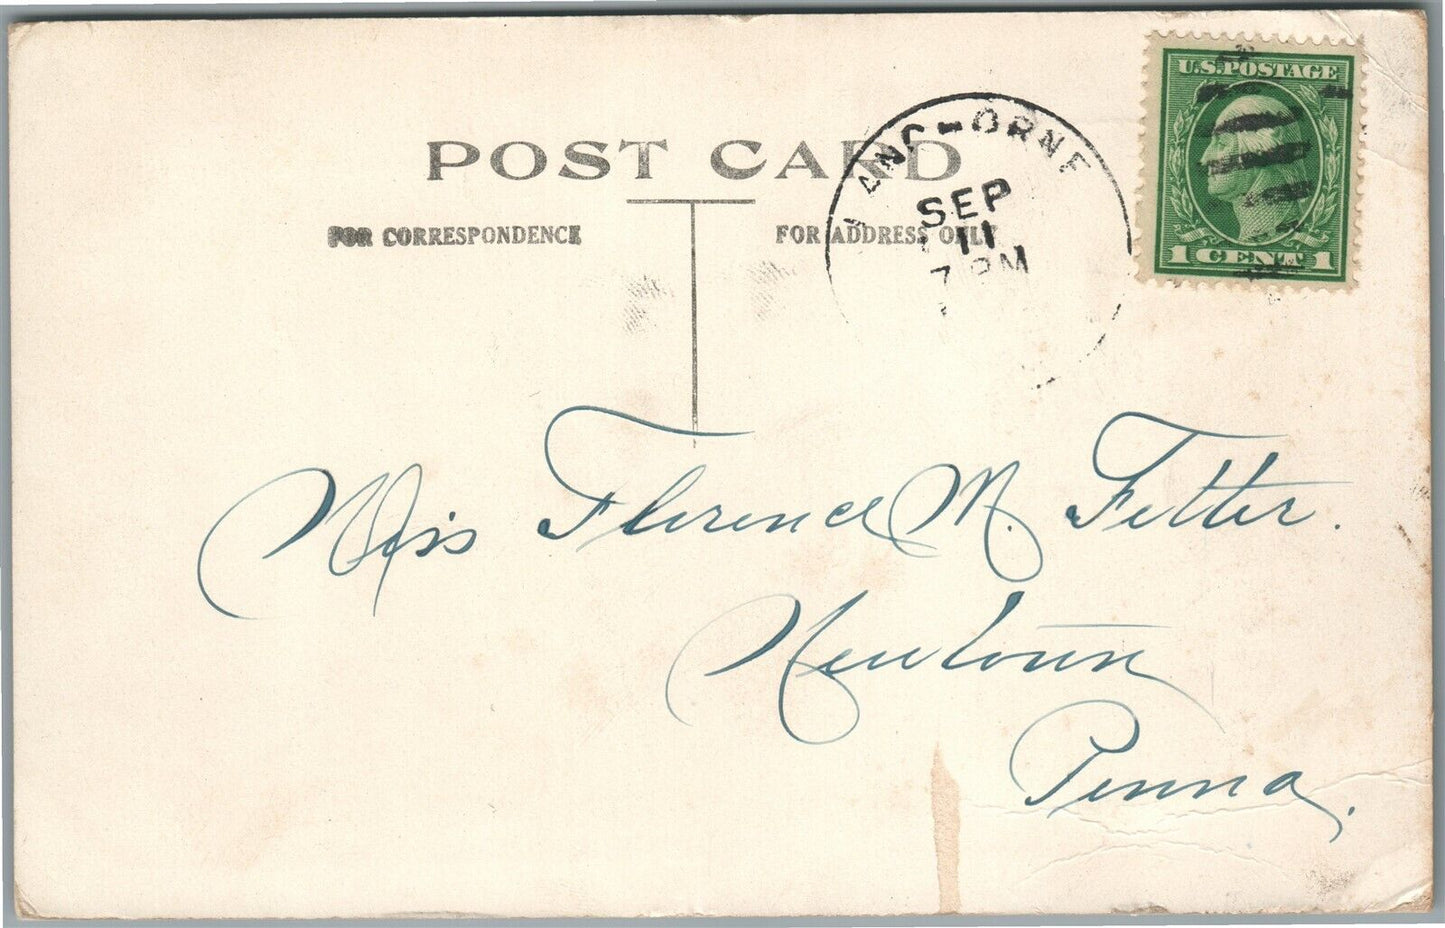 POST CARD
FOR CORRESPONDENCE
FOR ADDRESS ONLY
SEP
11
7 PM
U.S. POSTAGE
1 CENT 1
Miss Florence M. Fetter.
Newtown
Penna.